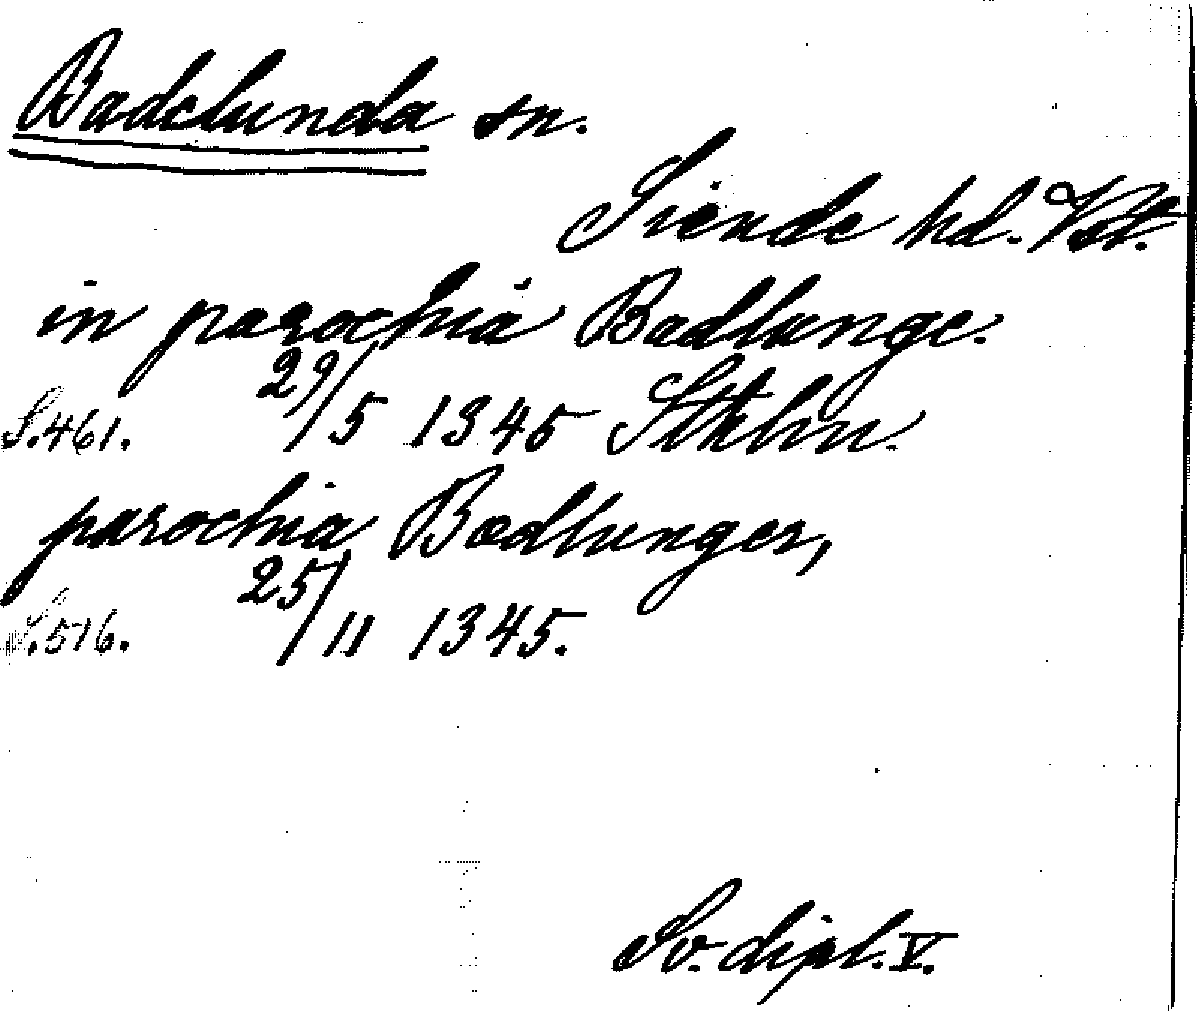 Badelunda sn.
Siende hd. Vstm.
in parochia Badlunge.
S.461. 29/5 1345 Sthlm.
parochia Bædlunger,
S.516. 25/11 1345.
Sv. dipl. V.